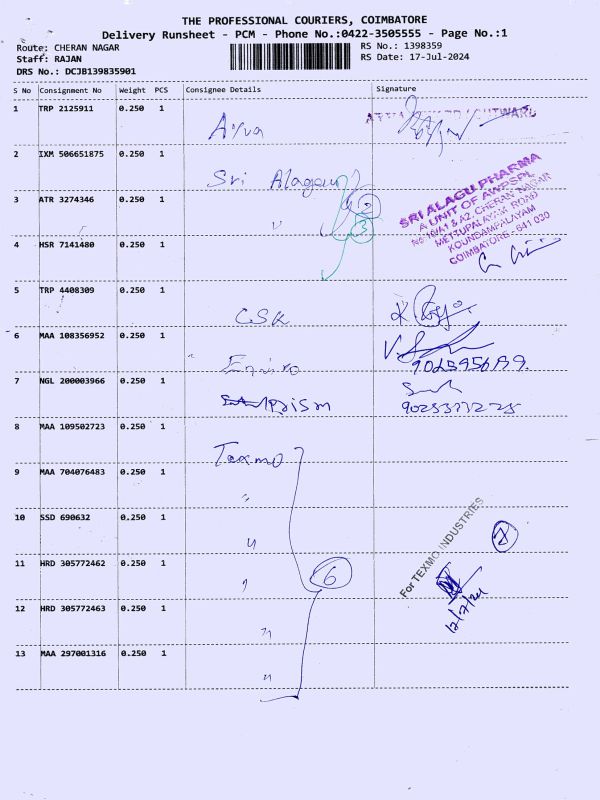 THE PROFESSIONAL COURIERS, COIMBATORE
Delivery Runsheet - PCM - Phone No.:0422-3505555 - Page No.:1
Route: CHERAN NAGAR
Staff: RAJAN
DRS No.: DCJB139835901
RS No.: 1398359
RS Date: 17-Jul-2024
S No Consignment No Weight PCS Consignee Details Signature
1 TRP 2125911 0.250 1
2 IXM 506651875 0.250 1
Sri Alagau
3 ATR 3274346 0.250 1
2
3
SRI ALAGU PHARMA
A UNIT OF AWPSPL
METTUPALAYAM ROAD
KOUNDAMPALAYAM
COIMBATORE - 641 030
4 HSR 7141480 0.250 1
5 TRP 4408309 0.250 1
CSK
6 MAA 108356952 0.250 1
7 NGL 200003966 0.250 1
Prism
8 MAA 109502723 0.250 1
Texmo
9 MAA 704076483 0.250 1
"
10 SSD 690632 0.250 1
"
For TEXMO INDUSTRIES
11 HRD 305772462 0.250 1
"
6
12 HRD 305772463 0.250 1
"
13 MAA 297001316 0.250 1
"